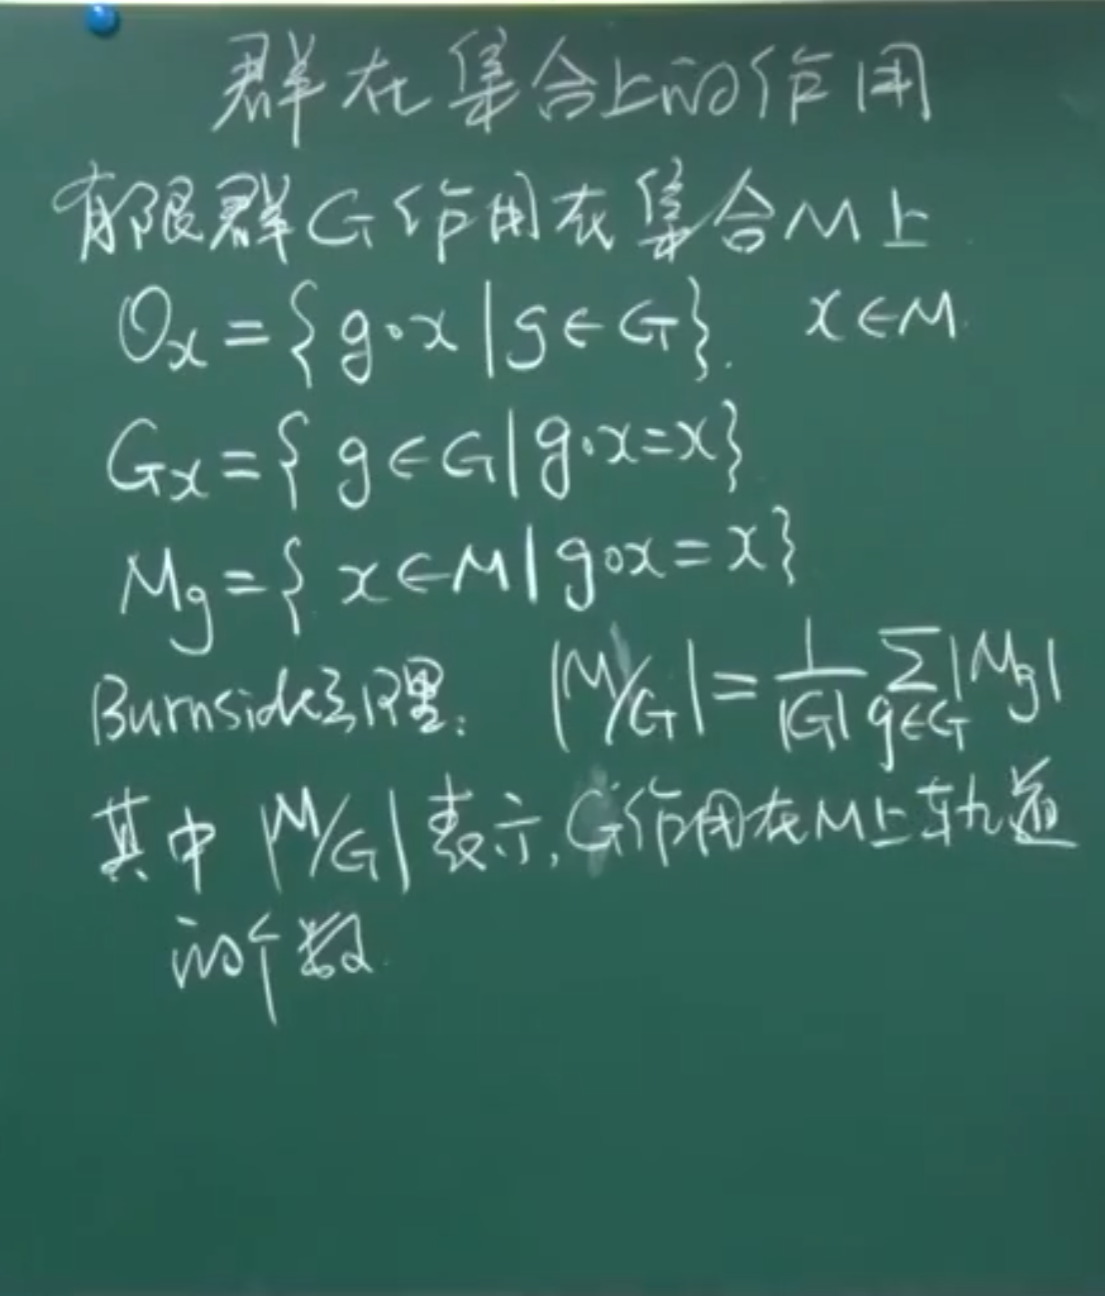 群在集合上的作用
有限群G作用在集合M上
Oₓ={g∘x|g∈G}. x∈M.
Gₓ={g∈G|g∘x=x}
M_g={x∈M|g∘x=x}
Burnside引理: |M/G|=1/|G| Σ_{g∈G}|M_g|
其中 |M/G| 表示,G作用在M上轨道
的个数.